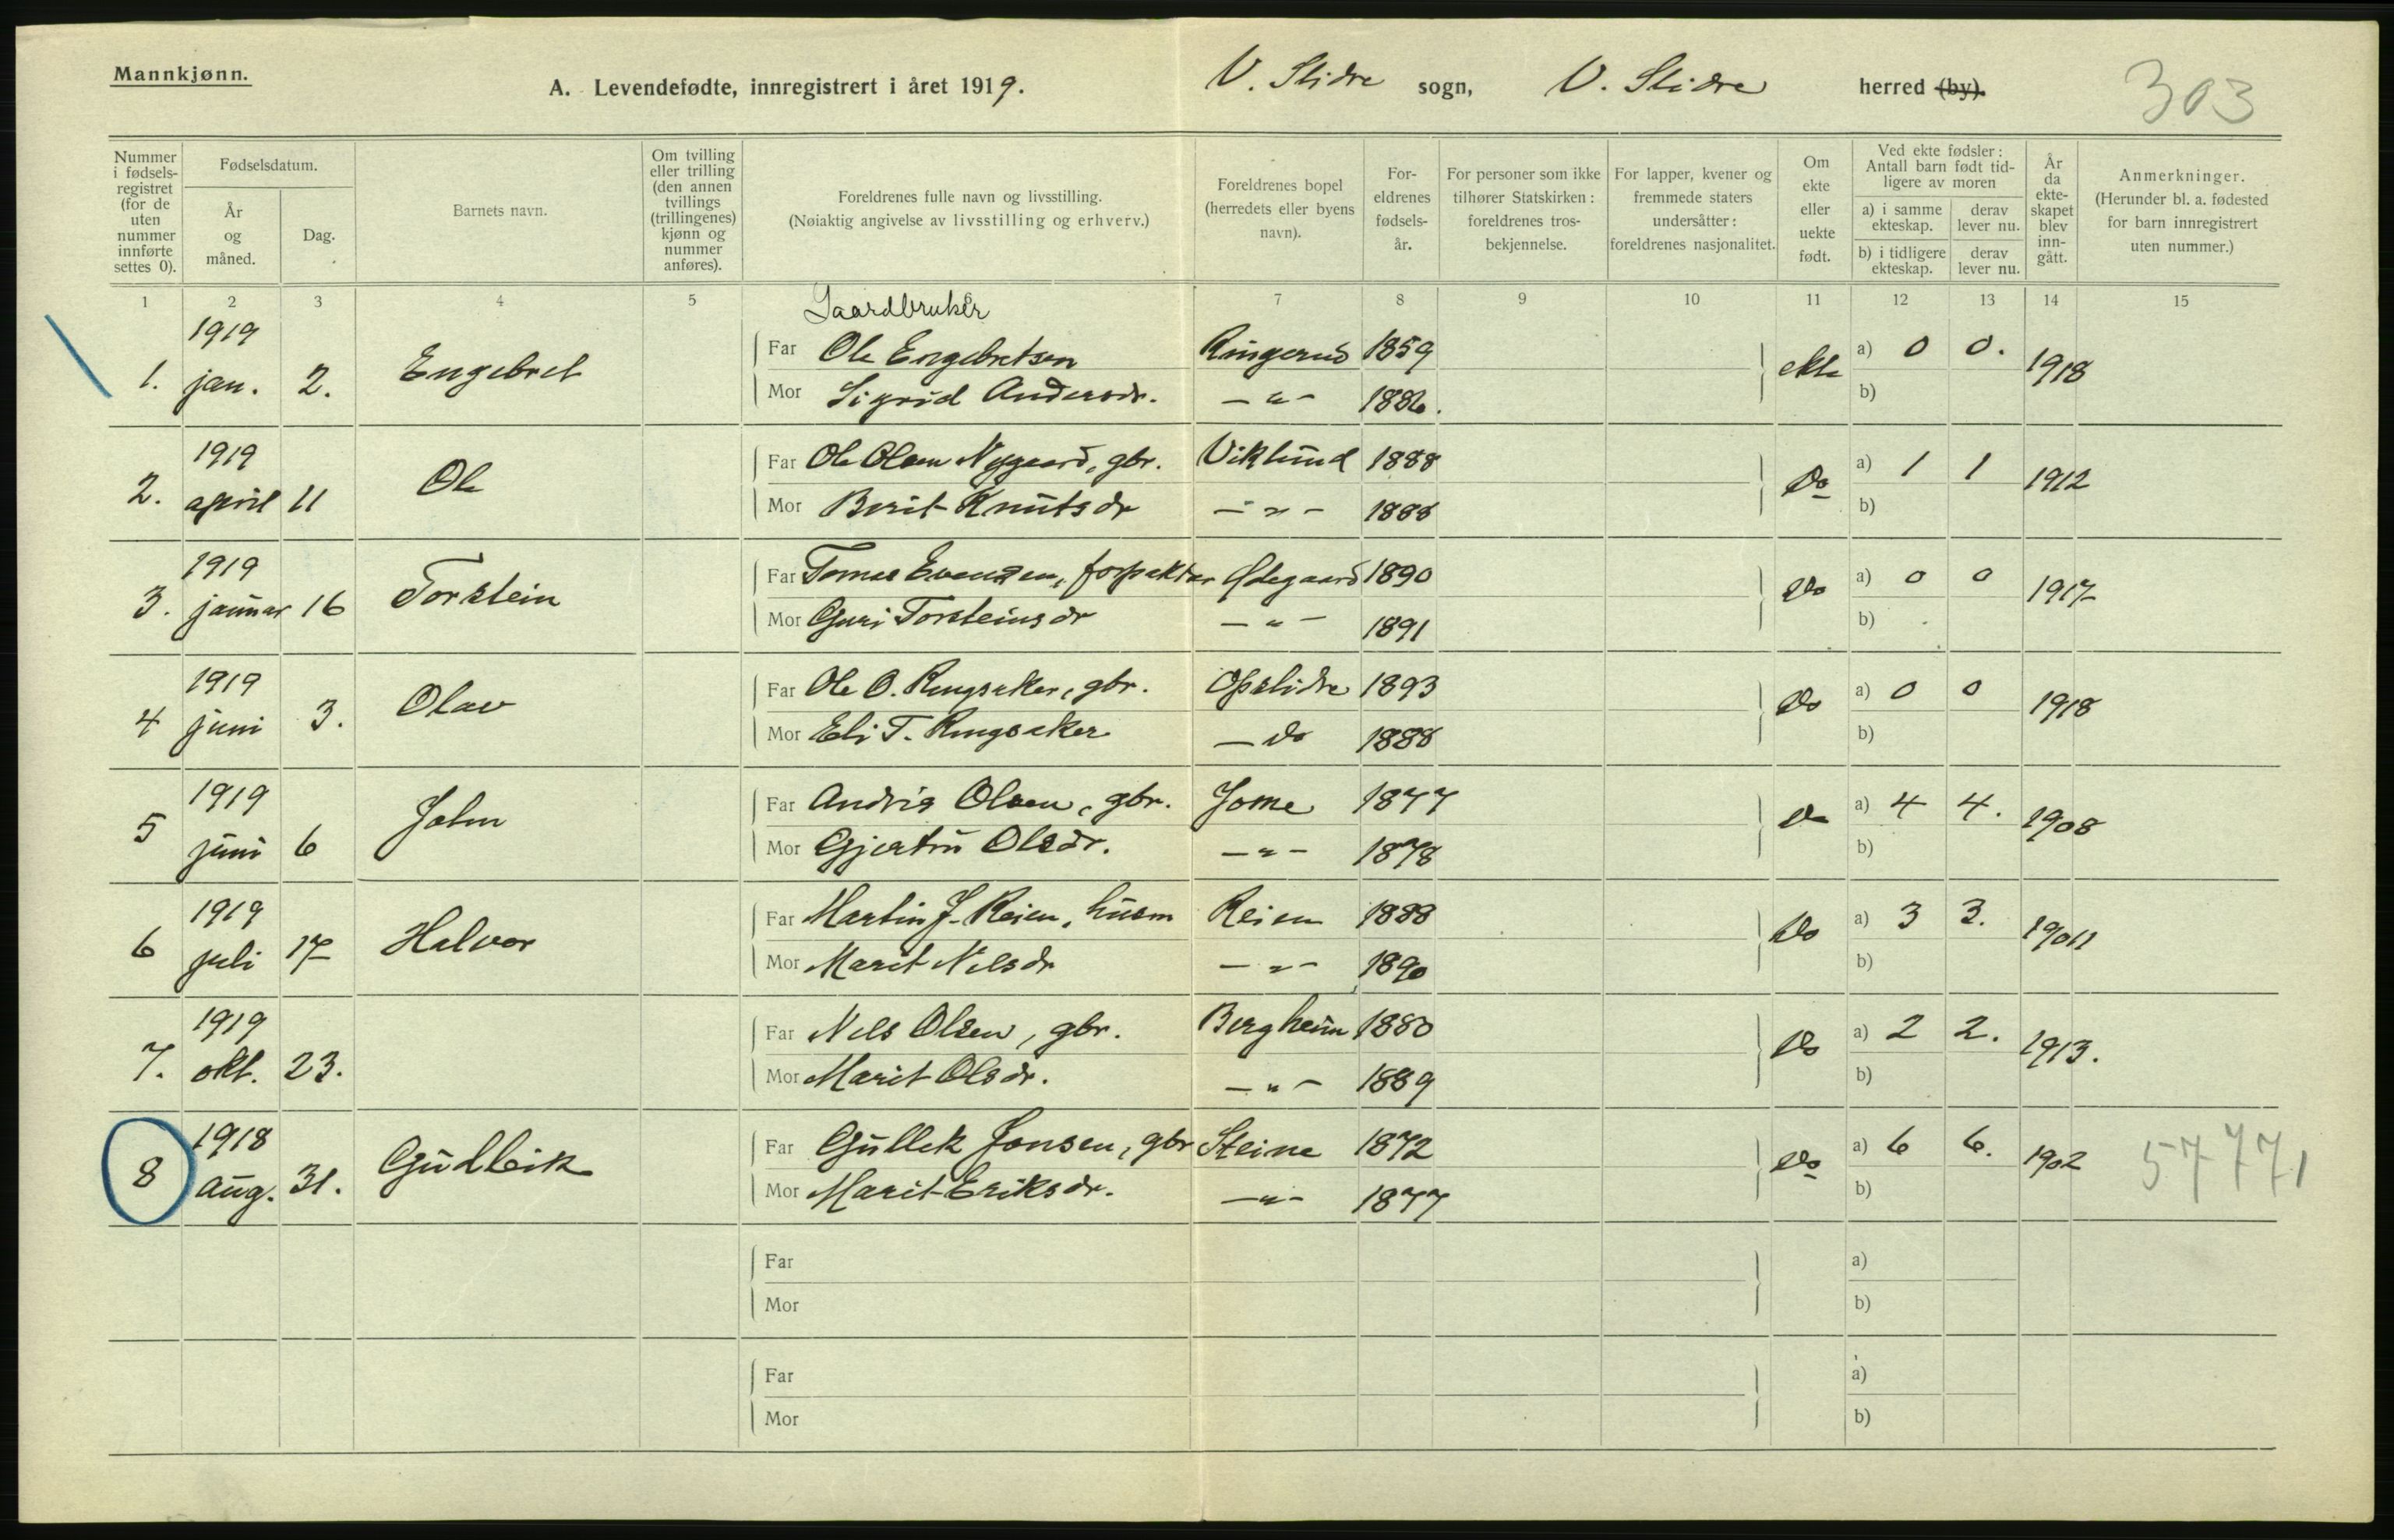 Mannkjønn.
A. Levendefødte, innregistrert i året 1919. V. Slidre sogn, V. Slidre herred (by).
303
Nummer i fødsels-registret (for de uten nummer innførte settes 0).
Fødselsdatum.
År og måned.
Dag.
Barnets navn.
Om tvilling eller trilling (den annen tvillings (trillingenes) kjønn og nummer anføres).
Foreldrenes fulle navn og livsstilling.
(Nøiaktig angivelse av livsstilling og erhverv.)
Foreldrenes bopel (herredets eller byens navn).
For-eldrenes fødsels-år.
For personer som ikke tilhører Statskirken: foreldrenes tros-bekjennelse.
For lapper, kvener og fremmede staters undersåtter: foreldrenes nasjonalitet.
Om ekte eller uekte født.
Ved ekte fødsler: Antall barn født tid-ligere av moren
a) i samme ekteskap. derav lever nu.
b) i tidligere ekteskap. derav lever nu.
År da ekte-skapet blev inn-gått.
Anmerkninger.
(Herunder bl. a. fødested for barn innregistrert uten nummer.)
1 2 3 4 5 7 8 9 10 11 12 13 14 15
Gaardbruker
1919
Far Ole Engebretsen Ringerud 1859 a) 0 0.
1. jan. 2. Engebret ekte 1918
Mor Sigrid Andersdr. — " — 1886. b)
1919
Far Ole Olsen Nygaard, gbr. Viklund 1888 a) 1 1
2. april 11 Ole Do 1912
Mor Berit Knutsdr — " — 1888 b)
1919
Far Tomas Evensen, forpakter Ødegaard 1890 a) 0 0
3. januar 16 Torstein Do 1917
Mor Guri Torsteinsdr — " — 1891 b)
1919
Far Ole O. Ringsaker, gbr. Opslidre 1893 a) 0 0
4 juni 3. Olav Do 1918
Mor Eli T. Ringsaker — do 1888 b)
1919
Far Andris Olsen, gbr. Jome 1877 a) 4 4.
5 juni 6 John Do 1908
Mor Gjertru Olsdr. — " — 1878 b)
1919
Far Martin J. Reien, husm Reien 1888 a) 3 3.
6 juli 17 Halvor Do
Mor Marit Nilsdr — " — 1890 b)
1919
Far Nils Olsen, gbr. Bergheim 1880 a) 2 2.
7. okt. 23. Do 1913.
Mor Marit Olsdr. — " — 1889 b)
1918
Far Gullek Jonsen, gbr Steine 1872 a) 6 6.
8 aug. 31. Gudleik Do 1902 57771
Mor Marit Eriksdr. — " — 1877 b)
Far a)
Mor b)
Far a)
Mor b)